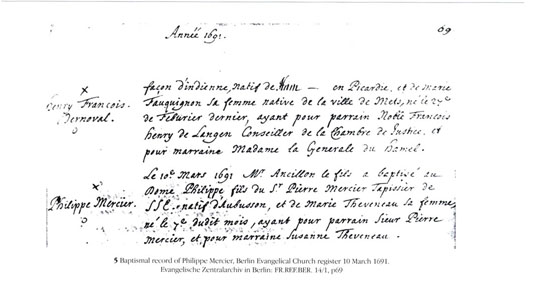 Année 1691.
69
façon d'indienne, natif de — en Picardie, et de marie
Henry François.
Dernoval.
Fauquignon sa femme native de la ville de Mets, né le 27e
de Fevrier dernier, ayant pour parrain Noble François
henry de Langen Conseiller de la Chambre de Justice, et
pour marraine Madame la Generale du hamel.
Le 10e Mars 1691 Mr. Ancillon le fils a baptisé au
Dome Philippe fils du Sr. Pierre Mercier Tapissier de
Philippe Mercier.
SSE natif d'Aubusson, et de Marie Theveneau sa femme,
né le 7e dudit mois, ayant pour parrain Sieur Pierre
mercier, et pour marraine Susanne Theveneau.
5 Baptismal record of Philippe Mercier, Berlin Evangelical Church register 10 March 1691.
Evangelische Zentralarchiv in Berlin: FR.REF.BER. 14/1, p69